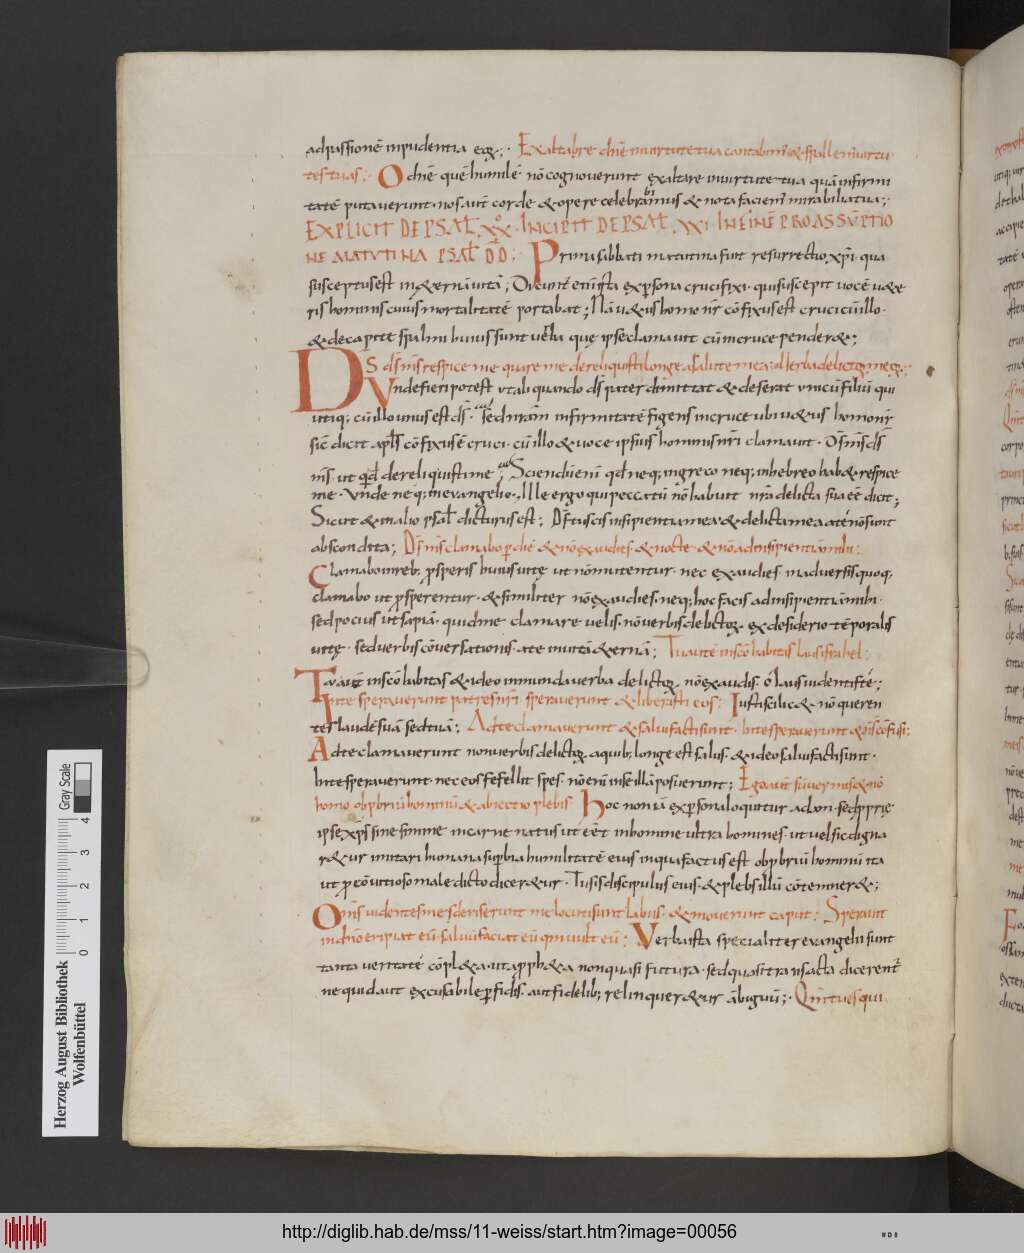 ad passionē inpudentia eoꝝ;· Exaltabre dn̄e in uirtute tua cantabim̄ & psallem̄ uirtu
tes tuas;· O dn̄e quē humilē nō cognouerunt exaltare in uirtute tua quā infirmi
tatē putauerunt· nos aut̄ corde & opere celebramus & nota faciem̄ mirabilia tua;·
EXPLICIT DE PSAL̄· XX· INCIPIT DE PSAL̄· XXI· IN FINĒ PRO ASSŪPTIO
NE MATUTINA PSAL̄ DD̄: Prima sabbati matutina fuit resurrectio xp̄i· qua
susceptus est in &ernā uitā; Dicunt̄ enī ista ex ꝑsona crucifixi· qui suscepit uocē u&e
ris hominis cuius mortalitatē portabat; Nā u&us homo nr̄ cōfixus est cruci cū illo·
& de capite psalmi huius sunt uerba que ipse clamauit cū in cruce pender&;·
DS ds̄ ms̄ respice me quare me dereliquisti longe a salute mea: uerba delictoꝝ meoꝝ;·
Unde fieri potest ut aliquando ds̄ pater dimittat & deserat unicū filiū qui
utiq; cū illo unus est ds̄· sed nrām infirmitatē figens in cruce ubi u&us homo nr̄
sic̄ dicit apl̄s cōfixus ē cruci· cū illo & uoce ipsius hominis nr̄i clamauit· Ds̄ ms̄ ds̄
ms̄· ut qd̄ dereliquisti me; Sciendū enī qd̄ neq; in greco neq; in hebreo hab& respice
me· Unde neq; in euangelio· Ille ergo qui peccatū nō habuit nrā delicta sua eē dicit;
Sicut & in alio psal̄ dicturus est; Ds̄ tu scis insipientiā mea & delicta mea a te nō sunt
abscondita; Ds̄ ms̄ clamabo ꝑ diē & nō exaudies· & nocte & nō ad insipientiā mihi:
Clamabo in reb; ꝓsperis huius uitę ut nō mutentur· nec exaudies· in aduersis quoq;
clamabo ut ꝓsperentur· & similiter nō exaudies· neq; hoc facis ad insipientiā mihi·
sed pocius ut sapiā· quid me clamare uelis· nō uerbis delictoꝝ· ex desiderio tēporalis
uitę· sed uerbis cōuersationis· a te in uitā &ernā; Tu aūtē in scō habitas laus israhel:
Tu aūt in scō habitas & ideo inmunda uerba delictoꝝ nō exaudis· o laus uidentis te;
In te sperauerunt patres nr̄i· sperauerunt & liberasti eos; Iusti scilic& nō queren
tes laudē suā sed tuā; Ad te clamauerunt & salui facti sunt· in te sperauerunt & n̄ s̄ cōfusi:
Ad te clamauerunt non uerbis delictoꝝ a quib; longe est salus· & ideo salui facti sunt·
In te sperauerunt· nec eos fefellit spes· nō enī in se illā posuerunt; Ego aut̄ sū uermis & nō
homo obprbriū hominū & abiectio plebis Hoc non iā ex ꝑsona loquitur adam· sed ꝓprię
ipse xp̄s sine semine in carne natus ut eēt in homine ultra homines· ut uel sic digna
r&ur imitari humana suꝑbia humilitatē eius in qua factus est obprbriū hominū ita
ut ꝓ cōuitioso maledicto dicer&ur· Tu sis discipulus eius· & plebs illū cōtemner&;
Oms̄ uidentes me deriserunt me locuti sunt labiis· & mouerunt caput: Sperauit
in dn̄o eripiat eū· saluū faciat eū qm̄ uult eū: Uerba ista specialiter euangelii sunt
tanta ueritate cōpl&a· ut a ꝓph&a non quasi futura· sed quasi transacta dicerent̄
ne quid aut excusabile ꝑfidis· aut fidelib; relinquer&ur ābiguū;· Qm̄ tu es qui
Gray Scale
0 1 2 3 4
Herzog August Bibliothek
Wolfenbüttel
http://diglib.hab.de/mss/11-weiss/start.htm?image=00056